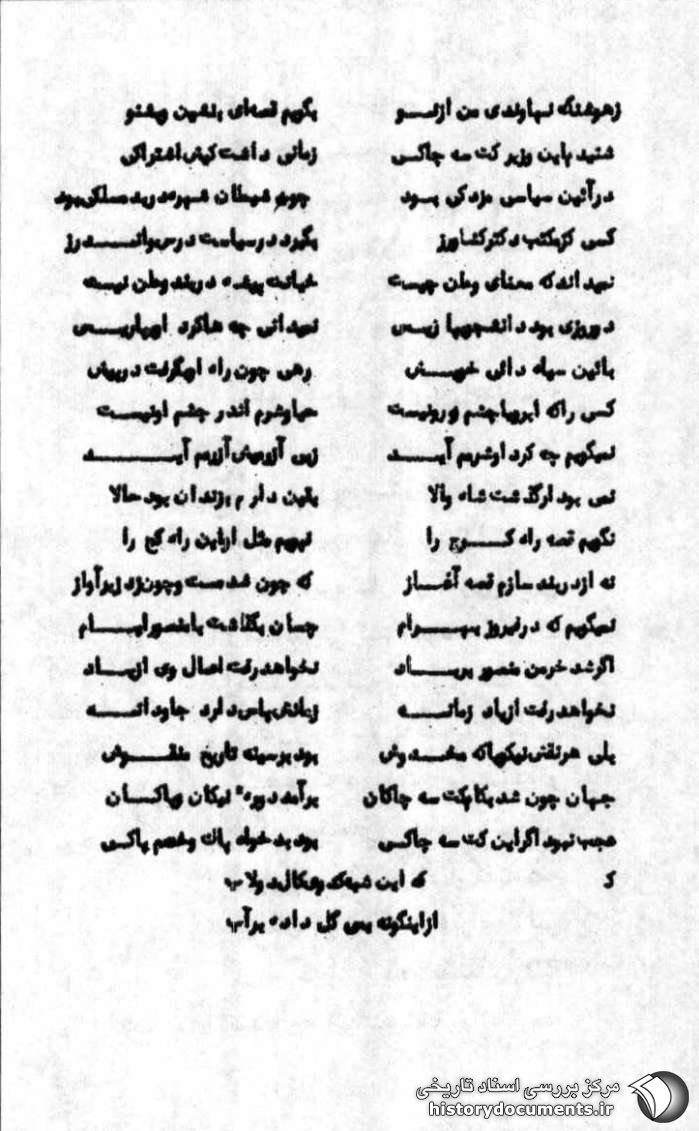 زهوشنگ نهاوندی من ازنـــو بگویم قصه‌ای بنشین وبشنو
شنید باین وزیر کت سه چاکسی زمانی داشت کیش اشتراکی
درآئین سیاسی مزدکی بـود چون شیطان شهره در بد مسلکی بود
کسی کز مکتب دکترکشاورز بگیرد درسیاست درس وانـــدرز
نمیداندکه معنای وطن چیست خیانت پیشه دربند وطن نیست
دوروزی بود دانشجویها رئیس نمیدانی چه هاکرد اوپاریـــس
بائین سیاه دائی خویــش رهی چون راه اوبگرفت درپیش
کسی راکه ابروباچشم ورونیست حیاوشرم اندر چشم اونیست
نمیگویم چه کرد اوشرمم آیــد زبی آزرمیش آزرم آیـــــد
نمی بود ارگذشت شاه والا یقین دارم بزندان بود حالا
نگویم قصه راه کـــرج را نپویم مثل اواین راه کج را
نه ازدربند سازم قصه آغــاز که چون شد مست وچون زد زیرآواز
نمیگویم که درنیروز بهــرام چسان بگذاشت بامنصور اوبــام
اگرشد خرمن منصور بربــاد نخواهد رفت اعمال وی ازیــاد
نخواهد رفت ازیاد زمانــه زیانش پاس دارد جاودانــه
بلی هرنقش نیکوباکه مخـدوش بود برسینه تاریخ منقــوش
جهان چون شد بکام کت سه چاکان برآمد دوره نیکان وپاکــان
عجب نبود اگراین کت سه چاکی بود بد خواه پاك وخصم پاکی
که این
ازاینگونه بسی گل داده برآب
مرکز بررسی اسناد تاریخی
historydocuments.ir